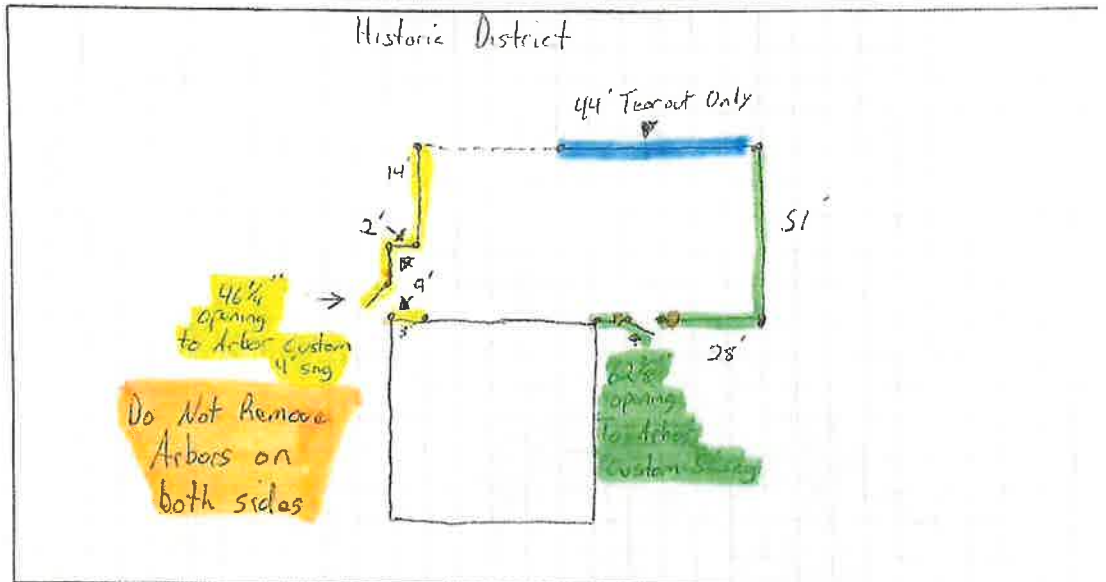 Historic District
44' Tearout Only
14'
2'
9'
3'
51'
28'
46 1/4"
opening
to Arbor Custom
4' sng
Do Not Remove
Arbors on
both sides
opening
To Arbor
Custom